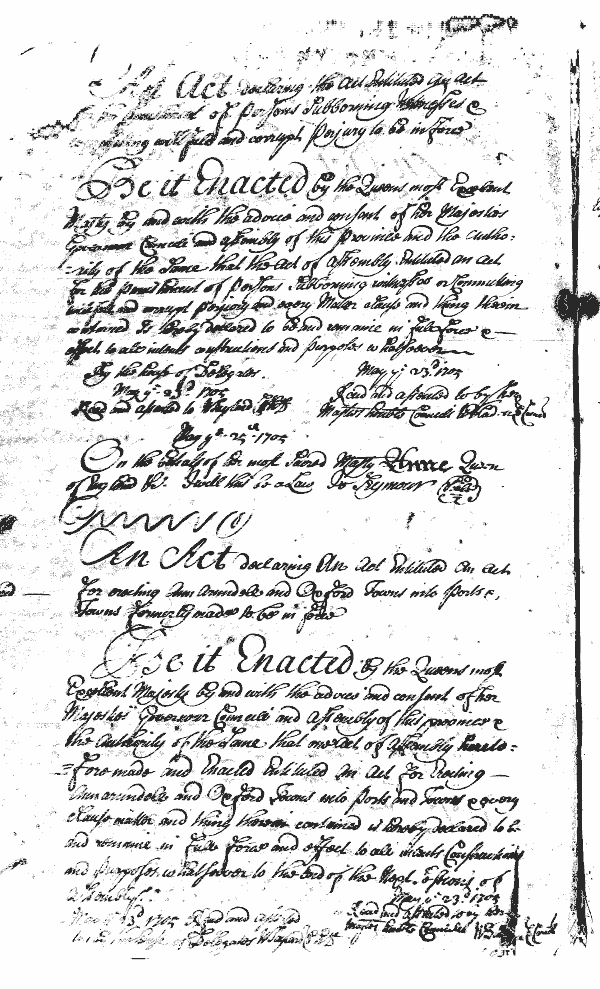 An Act declaring the Act Entituled an Act
for the punishment of Persons Subborning Witnesses &
committing wilfull and corrupt Perjury to be in force
Be it Enacted by the Queens most Excellent
Majty by and with the advice and consent of her Majesties
Governour Councill and Assembly of this Province and the Autho:
=rity of the Same that the Act of Assembly Entituled an Act
for the Punishment of Persons Subborning witnesses or Committing
wilfull and corrupt Perjury and every Matter clause and thing therein
contained is hereby declared to be and remaine in full force &
effect to all intents constructions and purposes whatsoever
By the house of Delegates.
May ye 23d 1705
Read and assented to
May ye 23d 1705
Read and assented to by her
Majtys honble Councill
May ye 25th 1705
On the behalf of her most Sacred Majty Anne Queen
of England &c. I will this be a Law Jo Seymour
An Act declaring An Act Entituled an Act
For erecting Ann arundell and Oxford Towns into Ports &
Towns Formerly made to be in force
Be it Enacted By the Queens most
Excellent Majesty by and with the advice and consent of her
Majesties Governour Councill and Assembly of this province &
the Authority of the Same that one Act of Assembly hereto=
=Fore made and Enacted Entituled An Act for Erecting
Annarundell and Oxford Towns into Ports and Towns & every
clause matter and thing therein contained is hereby declared to be
and remaine in Full Force and effect to all intents Constructions
and Purposes whatsoever to the end of the Next Session of
Assembly.
May ye 23d 1705
Read and assented to by her
Majtys honble Councill
May ye 23d 1705 Read and assented
to by the house of Delegates